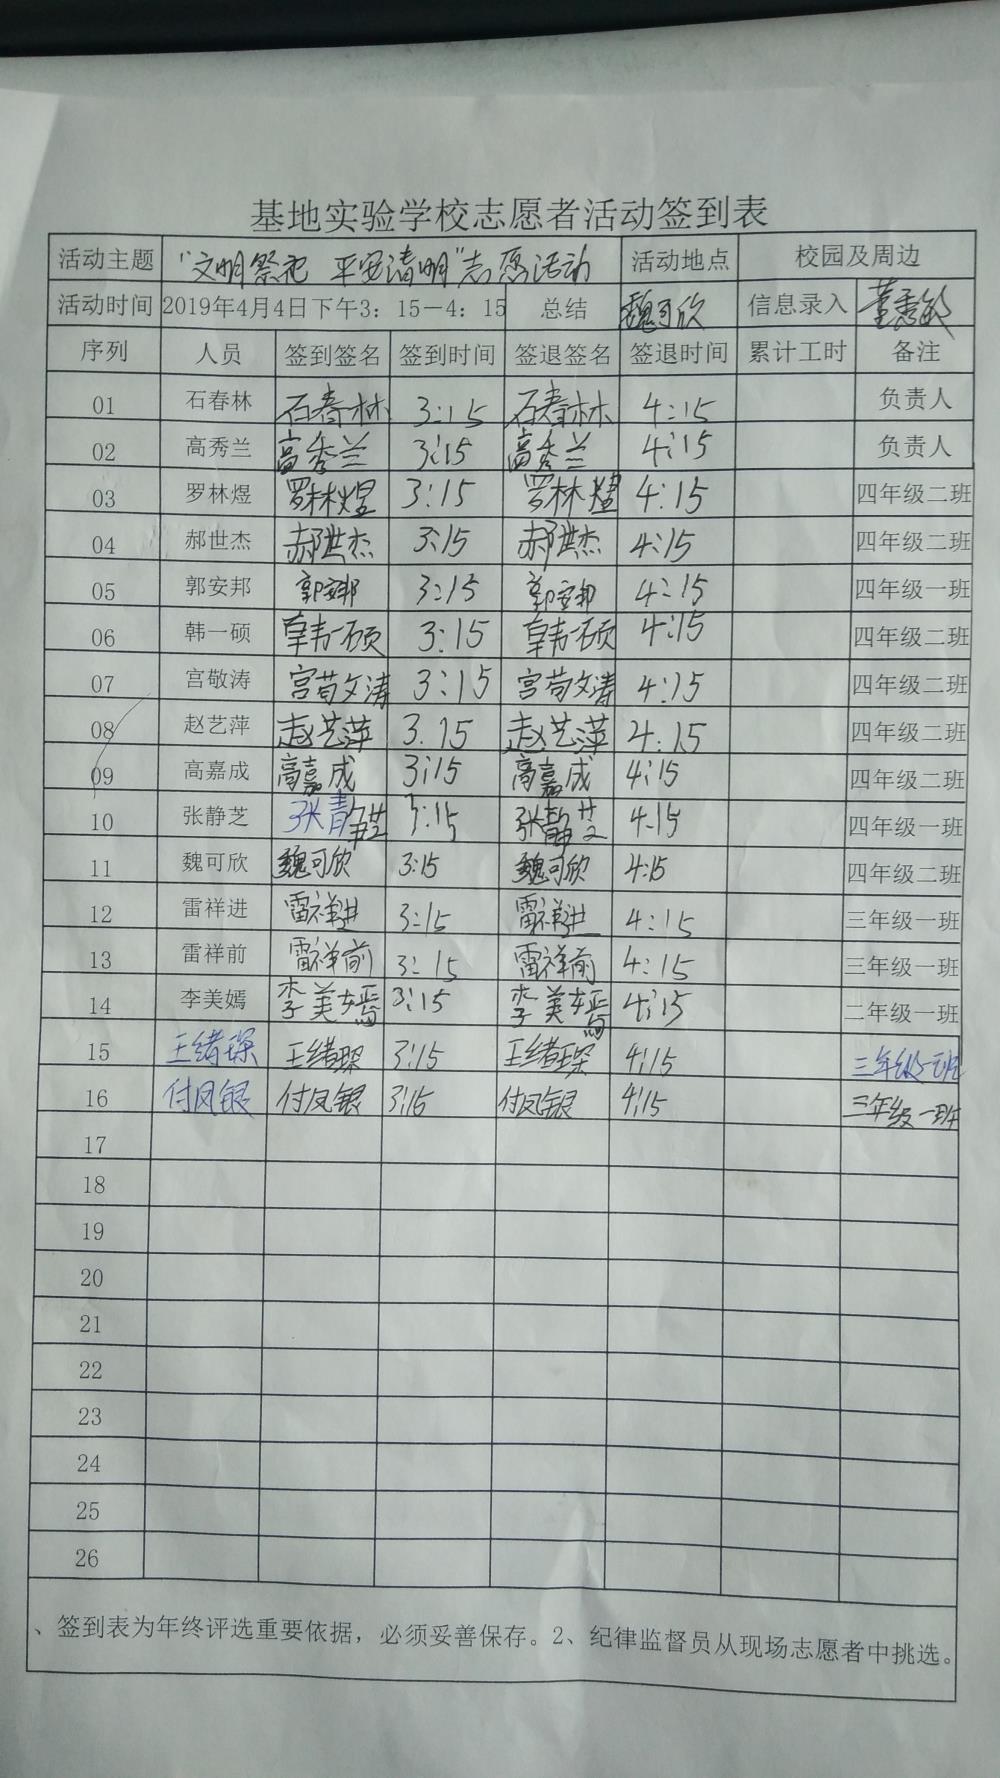 基地实验学校志愿者活动签到表
活动主题 "文明祭祀 平安清明"志愿活动 活动地点 校园及周边
活动时间 2019年4月4日下午3：15－4：15 总结 魏可欣 信息录入 董秀敏
序列 人员 签到签名 签到时间 签退签名 签退时间 累计工时 备注
01 石春林 石春林 3:15 石春林 4:15 负责人
02 高秀兰 高秀兰 3:15 高秀兰 4:15 负责人
03 罗林煜 罗林煜 3:15 罗林煜 4:15 四年级二班
04 郝世杰 郝世杰 3:15 郝世杰 4:15 四年级二班
05 郭安邦 郭安邦 3:15 郭安邦 4:15 四年级一班
06 韩一硕 韩一硕 3:15 韩一硕 4:15 四年级二班
07 宫敬涛 宫敬涛 3:15 宫敬涛 4:15 四年级二班
08 赵艺萍 赵艺萍 3.15 赵艺萍 4:15 四年级二班
09 高嘉成 高嘉成 3:15 高嘉成 4:15 四年级二班
10 张静芝 张静芝 3:15 张静芝 4:15 四年级一班
11 魏可欣 魏可欣 3:15 魏可欣 4:15 四年级二班
12 雷祥进 雷祥进 3:15 雷祥进 4:15 三年级一班
13 雷祥前 雷祥前 3:15 雷祥前 4:15 三年级一班
14 李美嫣 李美嫣 3:15 李美嫣 4:15 二年级一班
15 王绪琛 王绪琛 3:15 王绪琛 4:15 三年级一班
16 付凤银 付凤银 3:15 付凤银 4:15 三年级一班
17
18
19
20
21
22
23
24
25
26
、签到表为年终评选重要依据，必须妥善保存。2、纪律监督员从现场志愿者中挑选。